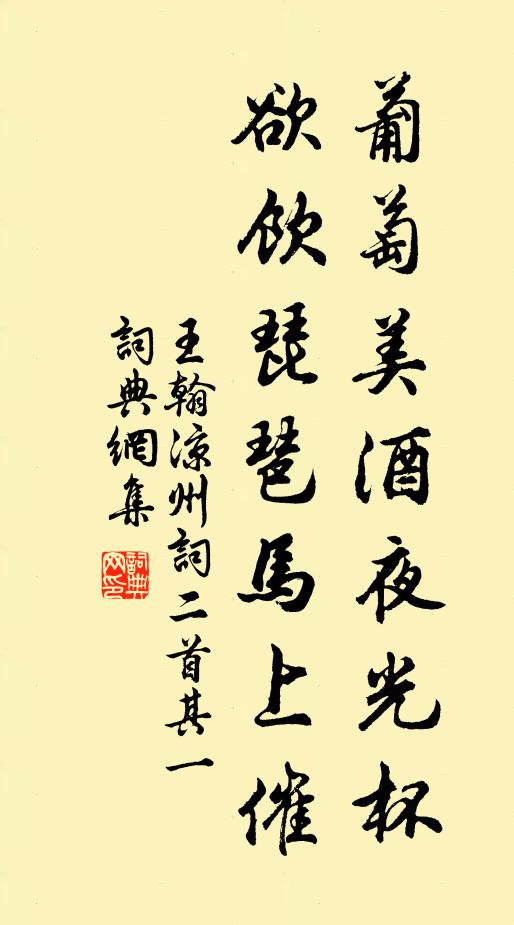 葡萄美酒夜光杯
欲飲琵琶馬上催
王翰涼州詞二首其一
詞典網集
詞典
网印